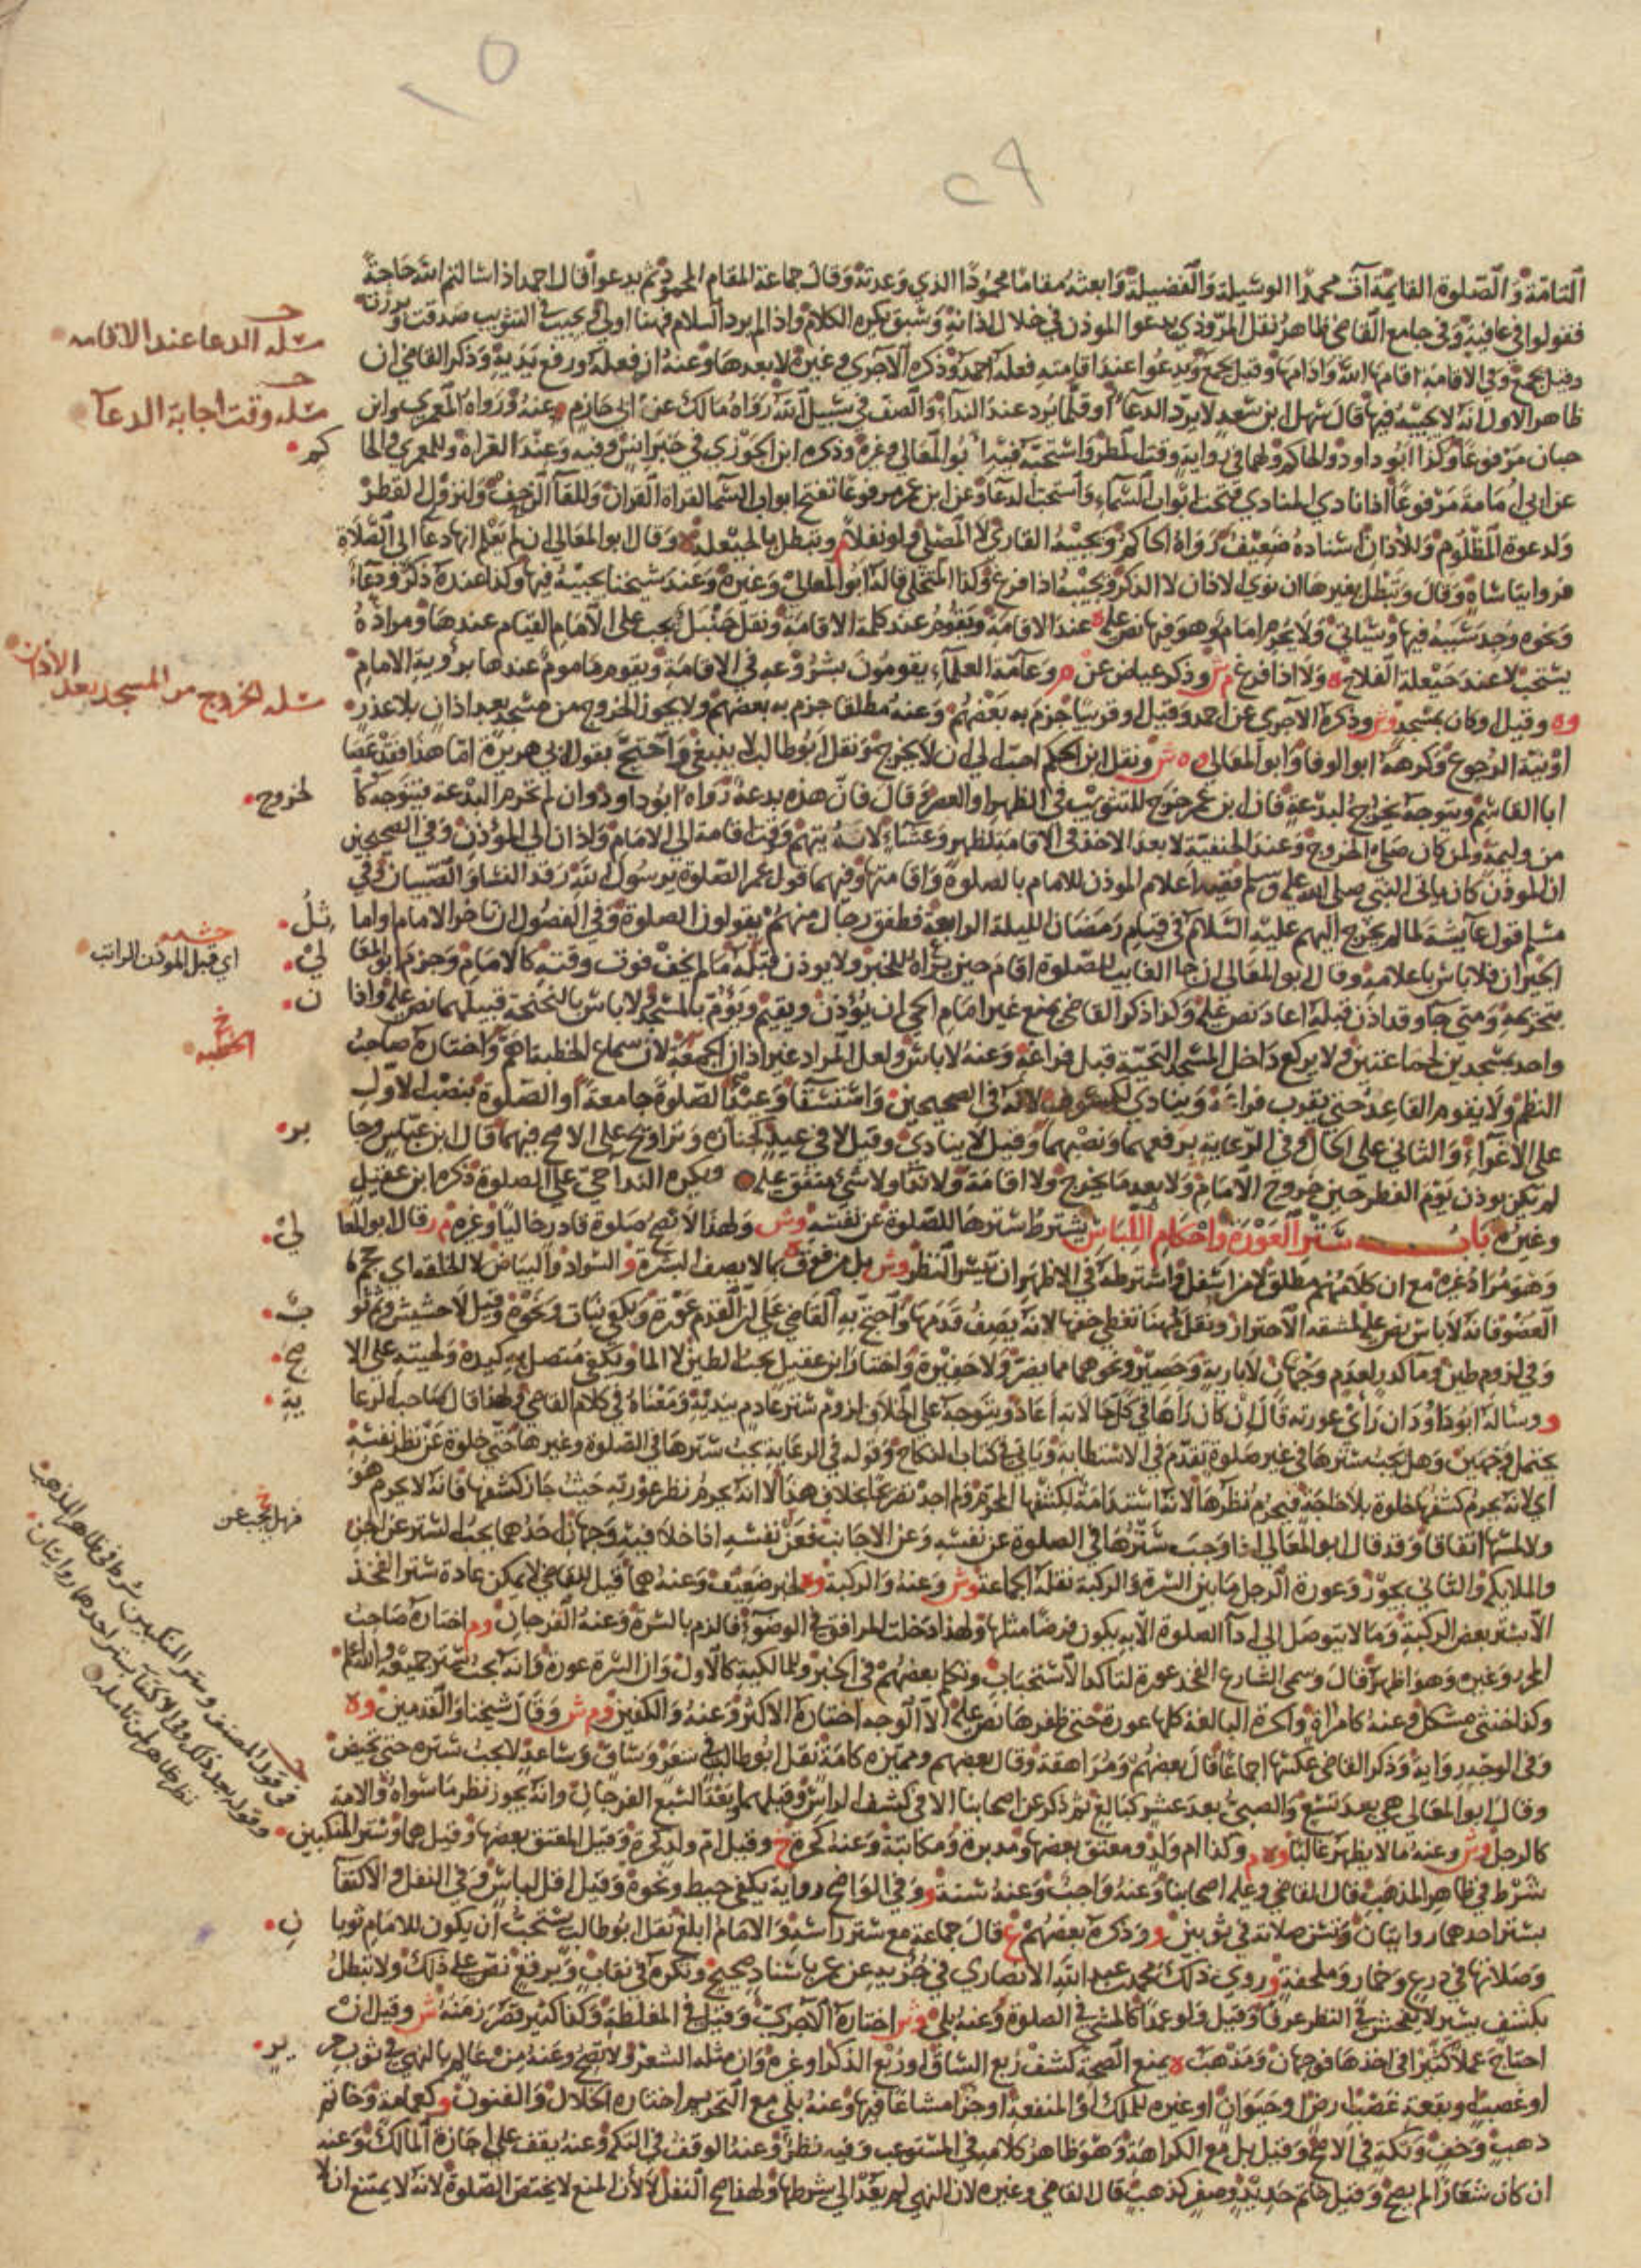 التامة والصلوة القائمة آت محمدا الوسيلة والفضيلة وابعثه مقاما محمودا الذي وعدته وقال جماعة المقام المحمود ثم يدعوا قال احمد اذا سالتم الله حاجة
فقولوا في عافية وفي جامع القاضي ظاهر نقل المروذي يدعوا الموذن في خلال اذانه وسبق يكره الكلام واذا لم يرد السلام فهنا اولى ويجيب في التثويب صدقت وبررت
وقيل يجمع وفي الاقامة اقامها الله وادامها وقيل يجمع ويدعوا عند اقامته فعله احمد وذكره الآجري وغيره لا بعدها وعنه انه فعله ورفع يديه وذكر القاضي ان
ظاهر الاول انه لا يجيبه فيها قال سهل ابن سعد لا يرد الدعاء او قلما يرد عند النداء والصف في سبيل الله رواه مالك عن ابي حازم عنه ورواه المعمري وابن
حبان مرفوعا وكذا ابو داود والحاكم ولهما في رواية وقت المطر واستحبه فيه ابو المعالي وغيره وذكره ابن الجوزي في خبر انس وفيه وعند القراءة وللمعمري والحا
عن ابي امامة مرفوعا اذا نادى المنادي فتحت ابواب السماء واستجيب الدعاء وعن ابن عمر مرفوعا تفتح ابواب السما لقراة القران وللقاء الزحف ولنزول القطر
ولدعوة المظلوم وللاذان اسناده ضعيف رواه الحاكم ويجيبه القارئ لا المصلي ولو نفلا وتبطل بالحيعلة وقال ابو المعالي ان لم يعلم انها دعا الى الصلاة
فروايتا ساه وقال وتبطل بغيرها ان نوى الاذان لا الذكر ويجيبه اذا فرغ وكذا المتخلي قاله ابو المعالي وغيره وعند شيخنا يجيبه فيها وكذا عنده ذكر ودعاء
ونحوه وجد سببه فيها وسياتي ولا يحرم امام وهو فيها نص عليه عند الاقامة ويقوم عند كلمة الاقامة ونقل حنبل يجب على الامام القيام عندها ومراده
يستحب لا عند حيعلة الفلاح ه ولا اذا فرغ م ش وذكر عياض عن م وعامة العلماء يقومون بشروعه في الاقامة ويقوم ماموم عندها برؤية الامام
وه وقيل او كان بمسجد وش وذكره الآجري عن احمد وقيل او قريبا جزم به بعضهم وعنه مطلقا جزم به بعضهم ولا يجوز الخروج من مسجد بعد اذان بلا عذر
او نية الرجوع وكرهه ابو الوفا وابو المعالي وه ش ونقل ابن الحكم احب الي ان لا يخرج ونقل ابو طالب لا ينبغي واحتج بقول ابي هريرة اما هذا فقد عصا
ابا القاسم ويتوجه يخرج لبدعة فان ابن عمر خرج للتثويب في الظهر او العصر وقال فان هذه بدعة رواه ابو داود وان لم تحرم البدعة فيتوجه كا
من وليمة ولمن كان صلى الخروج وعند الحنفية لا بعد الاخذ في الاقامة لظهر وعشاء لانه يتهم ووقت اقامة الى الامام واذان الى المؤذن وفي الصحيحين
ان الموذن كان ياتي النبي صلى الله عليه وسلم ففيه اعلام الموذن للامام بالصلوة واقامتها وفيهما قول عمر الصلوة يرسول الله رقد النسا والصبيان وفي
مسلم قول عايشة لما لم يخرج اليهم عليه السلام في قيام رمضان الليلة الرابعة فطفق رجال منهم يقولون الصلوة وفي الفصول ان تاخر الامام او اما
الجيران فلا باس باعلامه وقال ابو المعالي ان جا الغايب للصلوة اقام حين يراه للخبر ولا يوذن قبله ما لم يخف فوت وقته كالامام وجزم ابو المعا
بتحريمه ومتى جا وقد اذن قبله اعاد نص عليه وكذا ذكر القاضي يمنع غير امام الحي ان يؤذن ويقيم ويؤم بالمسجد ولا باس بالنحنحة قبلهما نص عليه واذا
واحد بمسجدين لجماعتين ولا يركع داخل المسجد التحية قبل فراغه وعنه لا باس ولعل المراد غير اذان الجمعة لان سماع الخطبة اهم واختاره صاحب
النظم ولا يقوم القاعد حتى يقرب فراغه وينادي لكسوف لانه في الصحيحين واستسقا وعيد الصلوة جامعة او الصلوة بنصب الاول
على الاغراء والثاني على الحال وفي الرعاية برفعهما ونصبهما وقيل لا ينادي وقيل لا في عيد كجنازة وتراويح على الاصح فيهما قال ابن عباس وجا
لم يكن يوذن يوم الفطر حين خروج الامام ولا بعد ما يخرج ولا اقامة ولا نداء ولا شيء متفق عليه ويكره الندا حي على الصلوة ذكره ابن عقيل
وغيره باب ستر العورة واحكام اللباس يشترط سترها للصلوة عن نفسه وش ولهذا لا تصح صلوة قادر خاليا وغيره م ر قال ابو المعا
وهو مراد غيره مع ان كلامهم مطلق لا من اسفل واشترطه في الاظهر ان تيسر النظر وش بل من فوق بما لا يصف البشرة و السواد والبياض لا الخلقة اي حجم
العضو فانه لا باس نص عليه لمشقة الاحتراز ونقل مهنا تغطي خفها لانه يصف قدمها واحتج به القاضي على ان القدم عورة ويكفي نبات ونحوه وقيل لا حشيش وثم ثو
وفي لزوم طين وما كدر لعدم وجهان لا باريه وحصير ونحوهما مما يضر ولا حفيرة واختار ابن عقيل يجب الطين لا الما ويكفي متصل به كيده ولحيته على الا
و وساله ابو داود ان راى عورته قال ان كان راها في كلها لا انه اعاد ويتوجه على الخلاف لزوم ستر عادم بيديه ومعناه في كلام القاضي ولهذا قال صاحب الرعا
يحتمل وجهين وهل يجب سترها في غير صلوة تقدم في الاستطابة وياتي في كتاب النكاح وقوله في الرعاية يجب سترها في الصلوة وغيرها حتى خلوة عن نظر نفسه
اي لانه يحرم كشفها خلوة بلا حاجة فيحرم نظرها لانه استدامة لكشفها المحرم ولم اجد تصريحا بخلاف هذا لا انه يحرم نظر عورته حيث جاز كشفها فانه لا يحرم هو
ولا لمسها اتفاقا وقد قال ابو المعالي اذا وجب سترها في الصلوة عن نفسه وعن الاجانب فعن نفسه اذا خلا فيه وجهان احدهما يجب الستر عن الجن
والملايكة والثاني يجوز وعورة الرجل ما بين السرة والركبة نقله الجماعة وش وعنه والركبة وه لخبر ضعيف وعنه هما قيل للقاضي لا يمكن عادة ستر الفخذ
الا بستر بعض الركبة وما لا يتوصل الى اداء الصلوة الا به يكون فرضا مثلها ولهذا دخلت المرافق في الوضوء فالزم بالسرة وعنه الفرجان وم اختاره صاحب
المحرر وغيره وهو اظهر قال وسمى الشارع الفخذ عورة لتاكد الاستحباب وتكلم بعضهم في الخبر وللمالكية كالاول وان السرة عورة وانه يجب ستر جميعه والله اعلم
وكذا خنثى مشكل وعنه كامراة والحرة البالغة كلها عورة حتى ظفرها نص عليه الا الوجه اختاره الاكثر وعنه والكفين وم ش وقال شيخنا والقدمين وه
وفي الوجه رواية وذكر القاضي عكسها اجماعا قال بعضهم ومراهقة وقال بعضهم ومميزة كامة نقل ابو طالب في شعر وساق وساعد لا يجب ستره حتى تحيض
وقال ابو المعالي هي بعد تسع والصبي بعد عشر كبالغ ثم ذكر عن اصحابنا الا في كشف الراس وقبلهما وبعد السبع الفرجان وانه يجوز نظر ما سواه والامة
كالرجل وش وعنه ما لا يظهر غالبا وه م وكذا ام ولد ومعتق بعضها ومدبرة ومكاتبة وعنه كحرة خ وقيل ام ولد كحرة وقيل المعتق بعضها وقيل هما وستر المنكبين
شرط في ظاهر المذهب قال القاضي وعليه اصحابنا وعنه واجب وعنه سنة و وفي الواضح رواية يكفي خيط ونحوه وقيل اقل لباس وفي النفل والاكتفا
بستر احدهما روايتان وتسن صلاته في ثوبين و وذكره بعضهم ع قال جماعة مع ستر راسه والامام ابلغ نقل ابو طالب يستحب ان يكون للامام ثوبا
وصلاتها في درع وخمار وملحفة و روى ذلك محمد بن عبد الله الانصاري في جزيه عن عمر باسناد صحيح وتكره في نقاب وبرقع نص على ذلك ولا تبطل
بكشف يسير لا يفحش في النظر عرفا وقيل ولو عمدا كالمشي في الصلوة وعنه بلى وش اختاره الآجري وقيل في المغلظة وكذا كثير قصر زمنه ش وقيل ان
احتاج عملا كثيرا في اخذها فوجهان ومذهب ه يمنع الصحة كشف ربع الساق او ربع الذكر او غيره وان مثله الشعر ولا تصح وعنه من عالم بالنهي في ثوب حر
او غصب وبقعة غصب ارض وحيوان او غيره للملك او المنفعة او جزا مشاعا فيها وعنه بلى مع التحريم اختاره الخلال والفنون و كعمامة وخاتم
ذهب وخف وتكة في الاصح وقيل بل مع الكراهة وهو ظاهر كلامه في المستوعب وفيه نظر وعنه الوقف في التكة وعنه يقف على اجازة المالك وعنه
ان كان شعارا لم يصح وقيل خاتم حديد وصفر كذهب قال القاضي وغيره لان النهي لم يعد الى شرطها ولهذا صح النفل لا لان المنع لا يختص الصلوة لانه لا يمتنع ان لا
مسلة الدعا عند الاقامه
مسله وقت اجابة الدعا
كم
مسلة الخروج من المسجد بعد الاذان
لخروج
مثل
حشيه
اي قبل الموذن الراتب
لي
ن
الخطبه
بر
لي
ب
صح
ية
فهل يجب عن
فوقول المصنف وستر المنكبين شرط في ظاهر المذهب
وقوله بعد ذلك وفي الاكتفا بستر احدهما روايتان
نظر ظاهر لمن تامله
ن
ير